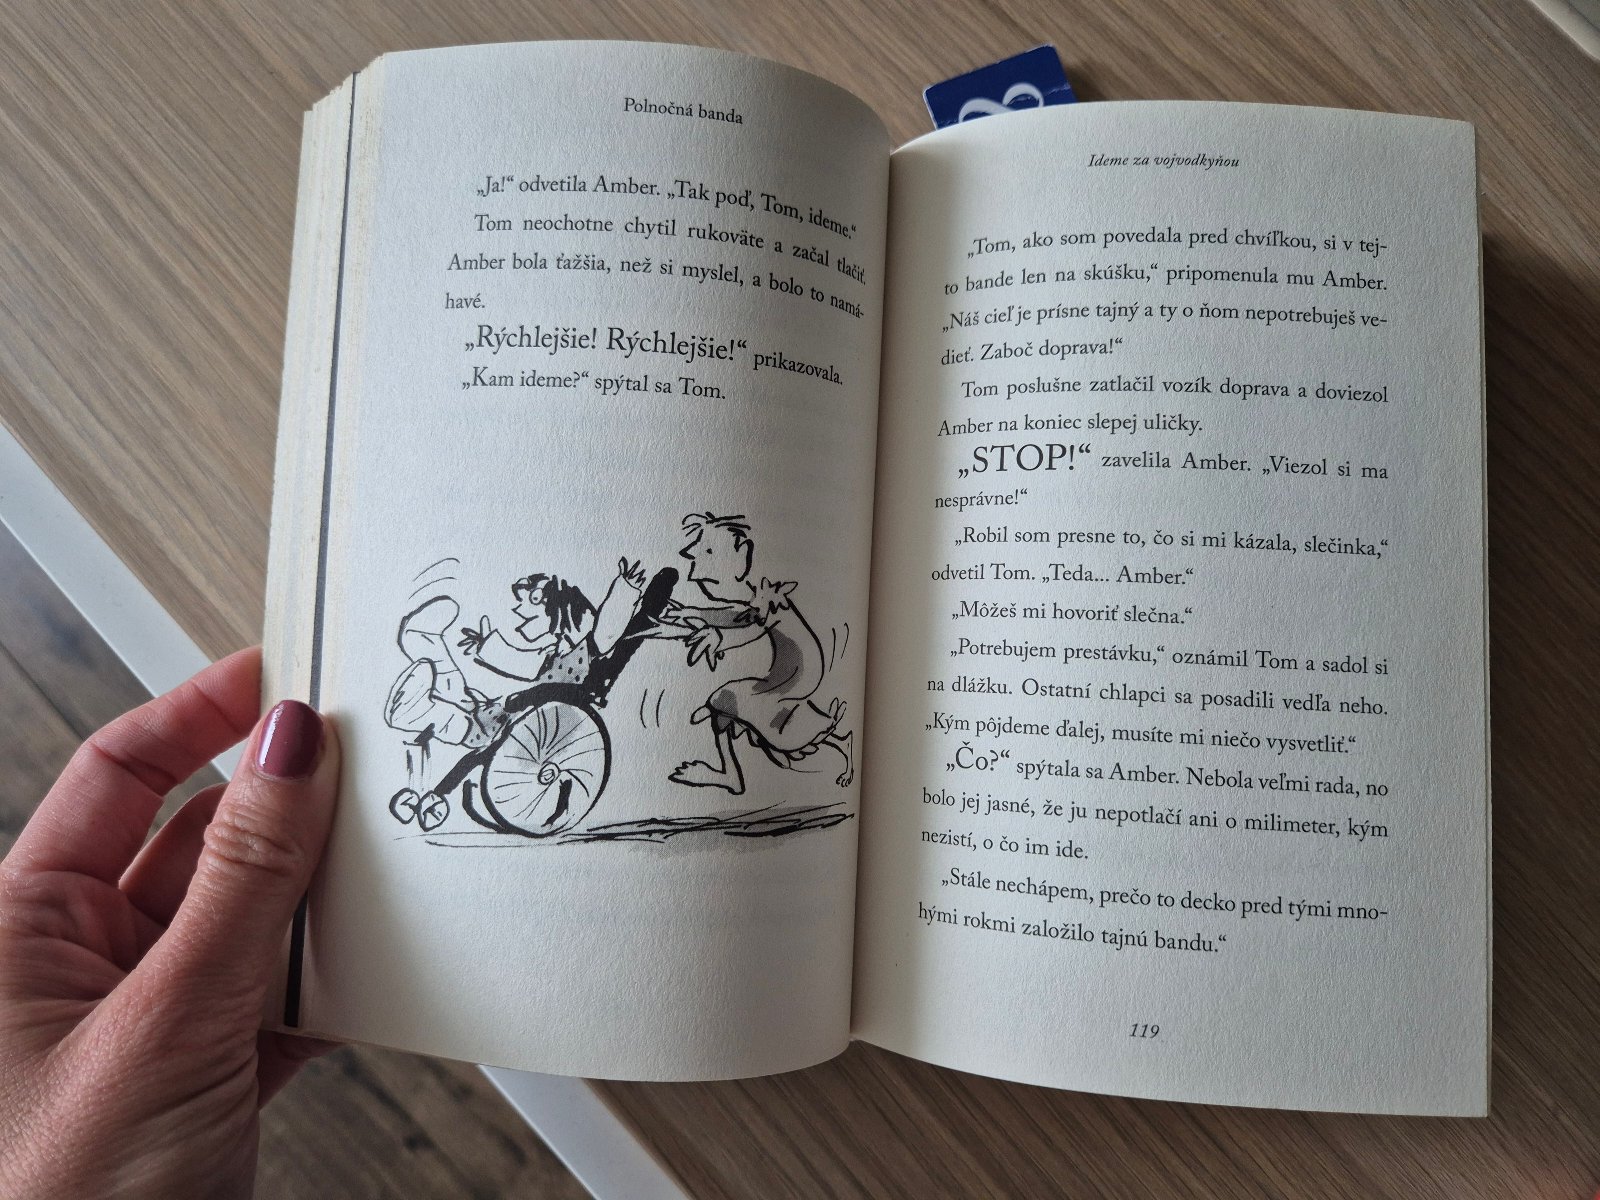 Polnočná banda
„Ja!“ odvetila Amber. „Tak poď, Tom, ideme.“
Tom neochotne chytil rukoväte a začal tlačiť.
Amber bola ťažšia, než si myslel, a bolo to namá-
havé.
„Rýchlejšie! Rýchlejšie!“ prikazovala.
„Kam ideme?“ spýtal sa Tom.
Ideme za vojvodkyňou
„Tom, ako som povedala pred chvíľkou, si v tej-
to bande len na skúšku,“ pripomenula mu Amber.
„Náš cieľ je prísne tajný a ty o ňom nepotrebuješ ve-
dieť. Zaboč doprava!“
Tom poslušne zatlačil vozík doprava a doviezol
Amber na koniec slepej uličky.
„STOP!“ zavelila Amber. „Viezol si ma
nesprávne!“
„Robil som presne to, čo si mi kázala, slečinka,“
odvetil Tom. „Teda... Amber.“
„Môžeš mi hovoriť slečna.“
„Potrebujem prestávku,“ oznámil Tom a sadol si
na dlážku. Ostatní chlapci sa posadili vedľa neho.
„Kým pôjdeme ďalej, musíte mi niečo vysvetliť.“
„Čo?“ spýtala sa Amber. Nebola veľmi rada, no
bolo jej jasné, že ju nepotlačí ani o milimeter, kým
nezistí, o čo im ide.
„Stále nechápem, prečo to decko pred tými mno-
hými rokmi založilo tajnú bandu.“
119